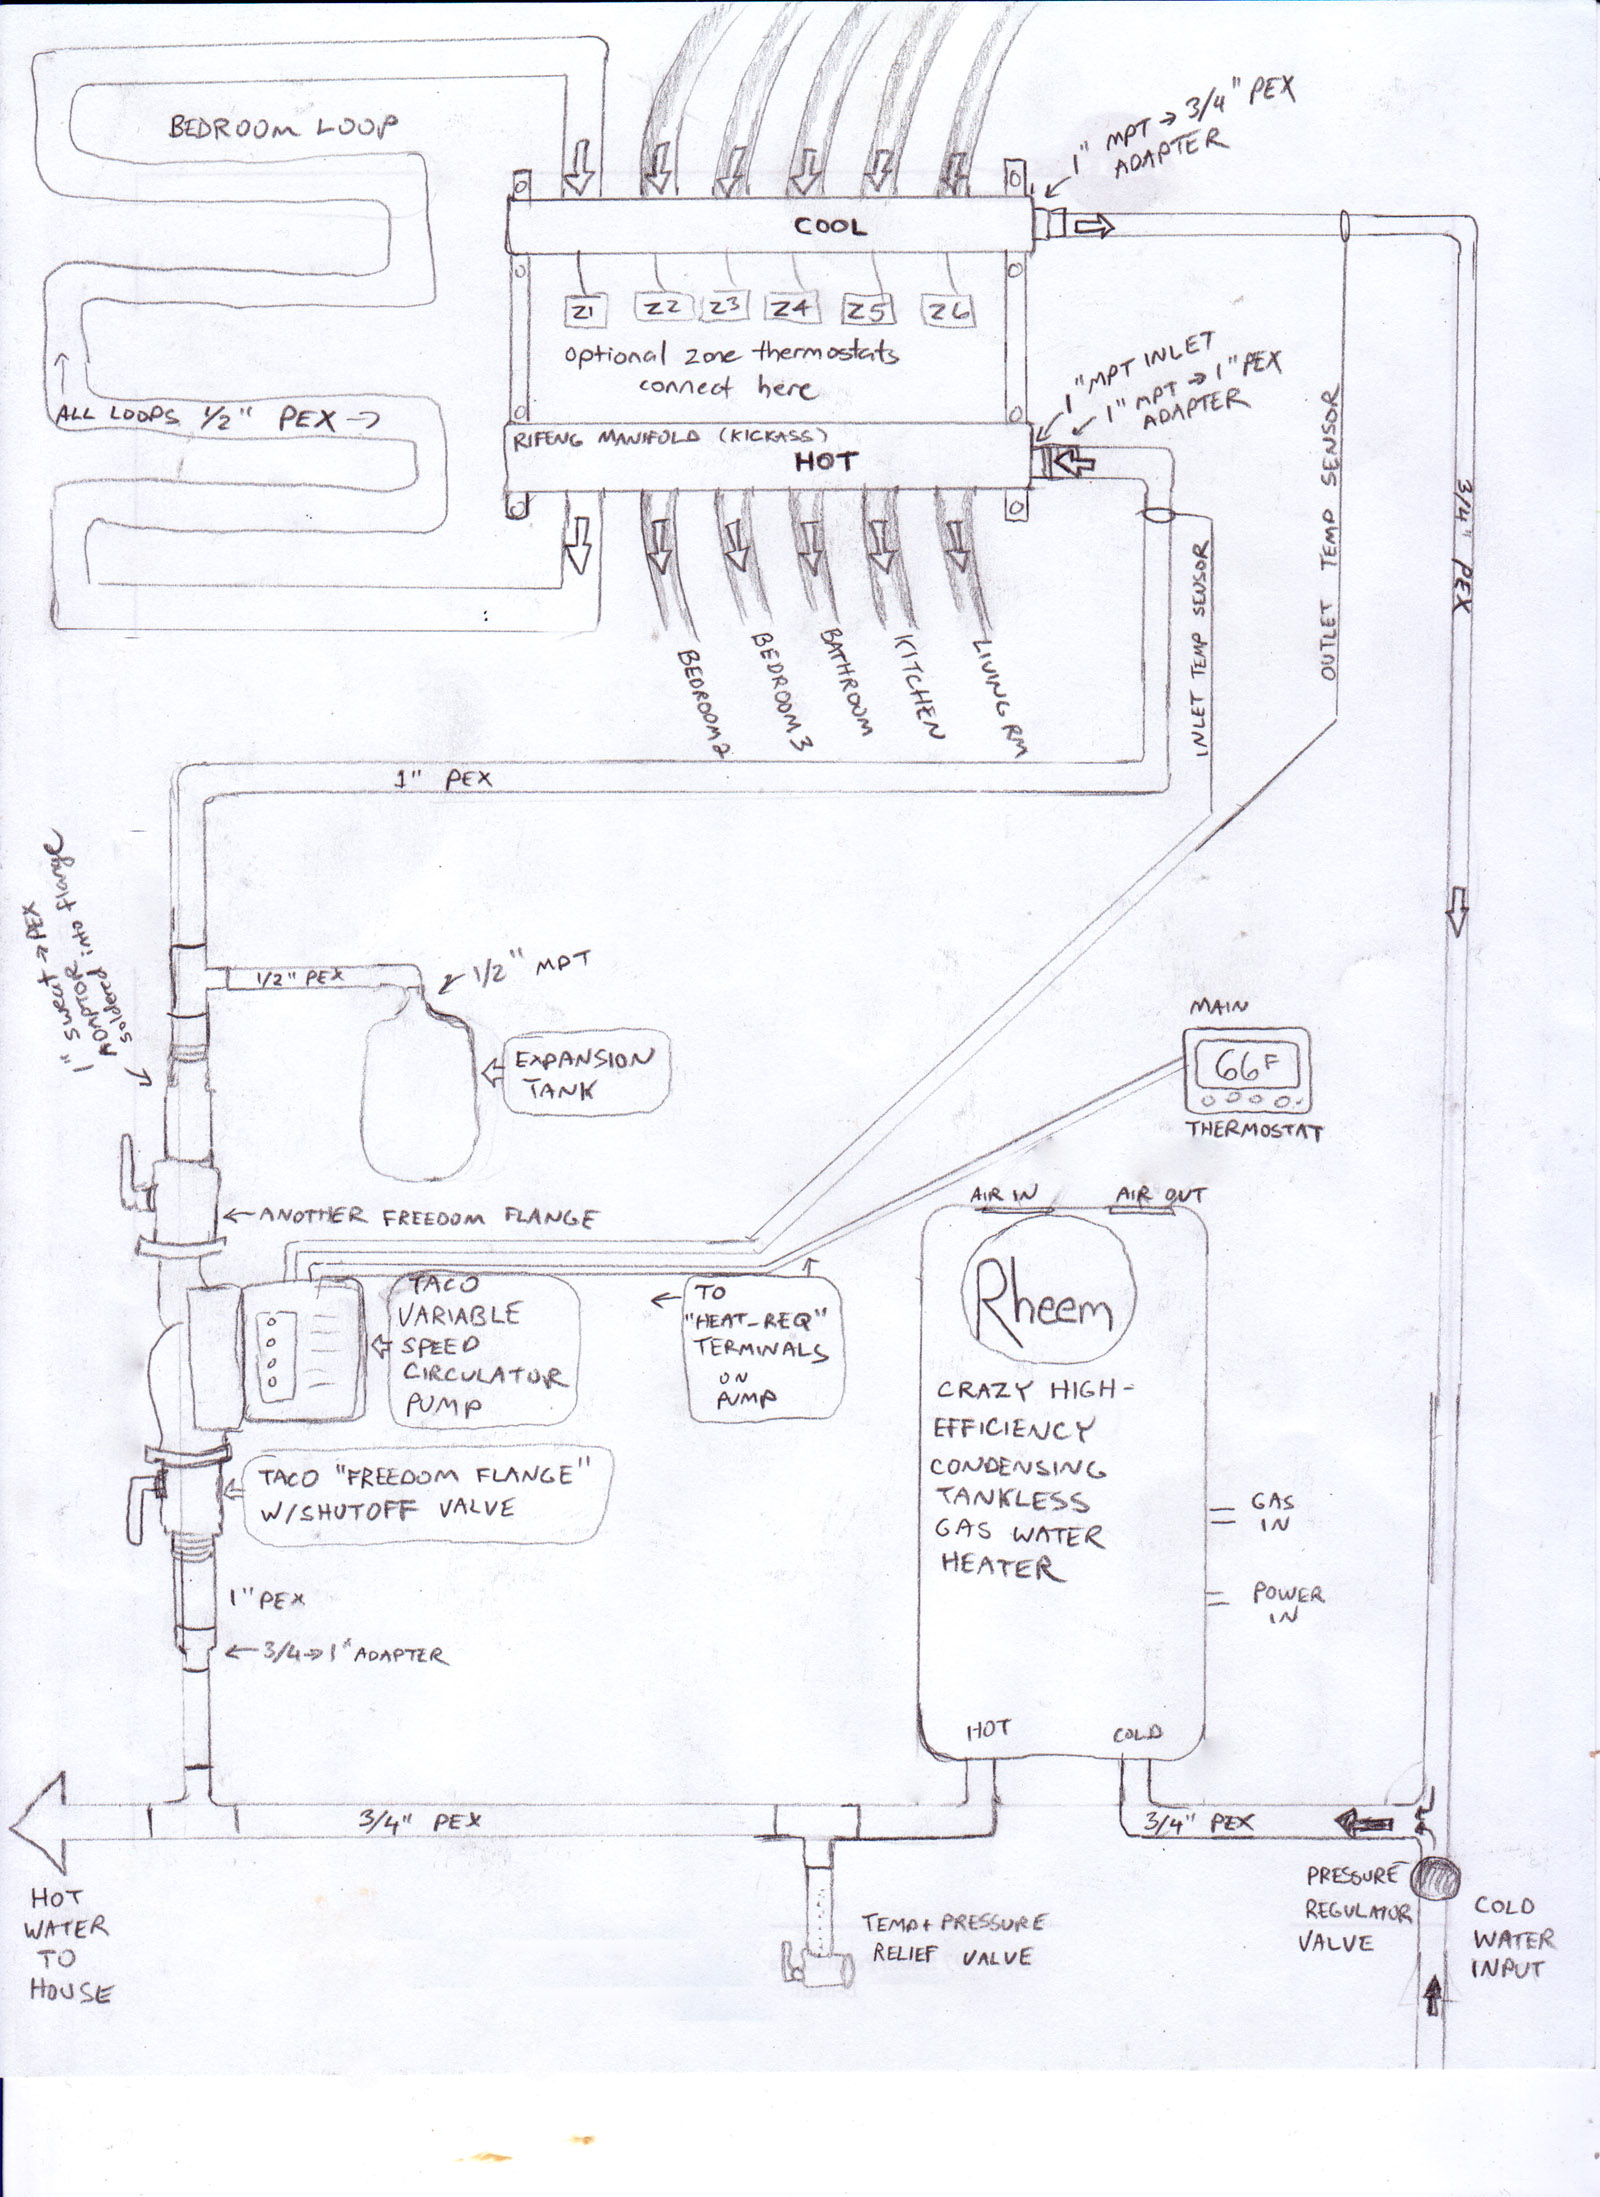 BEDROOM LOOP
1" MPT → 3/4" PEX
ADAPTER
COOL
Z1 Z2 Z3 Z4 Z5 Z6
optional zone thermostats
connect here
1" MPT INLET
1" MPT → 1" PEX
ADAPTER
ALL LOOPS 1/2" PEX →
RIFENG MANIFOLD (KICKASS)
HOT
OUTLET TEMP SENSOR
3/4" PEX
INLET TEMP SENSOR
BEDROOM 2
BEDROOM 3
BATHROOM
KITCHEN
LIVING RM
1" PEX
1" sweat → PEX
ADAPTOR
soldered into flange
1/2" PEX
1/2" MPT
EXPANSION
TANK
MAIN
66F
THERMOSTAT
ANOTHER FREEDOM FLANGE
AIR IN
AIR OUT
TACO
VARIABLE
SPEED
CIRCULATOR
PUMP
TO
"HEAT-REQ"
TERMINALS
ON
PUMP
Rheem
CRAZY HIGH-
EFFICIENCY
CONDENSING
TANKLESS
GAS WATER
HEATER
TACO "FREEDOM FLANGE"
W/SHUTOFF VALVE
GAS
IN
POWER
IN
1" PEX
3/4 → 1" ADAPTER
HOT
COLD
3/4" PEX
3/4" PEX
HOT
WATER
TO
HOUSE
TEMP + PRESSURE
RELIEF VALVE
PRESSURE
REGULATOR
VALVE
COLD
WATER
INPUT